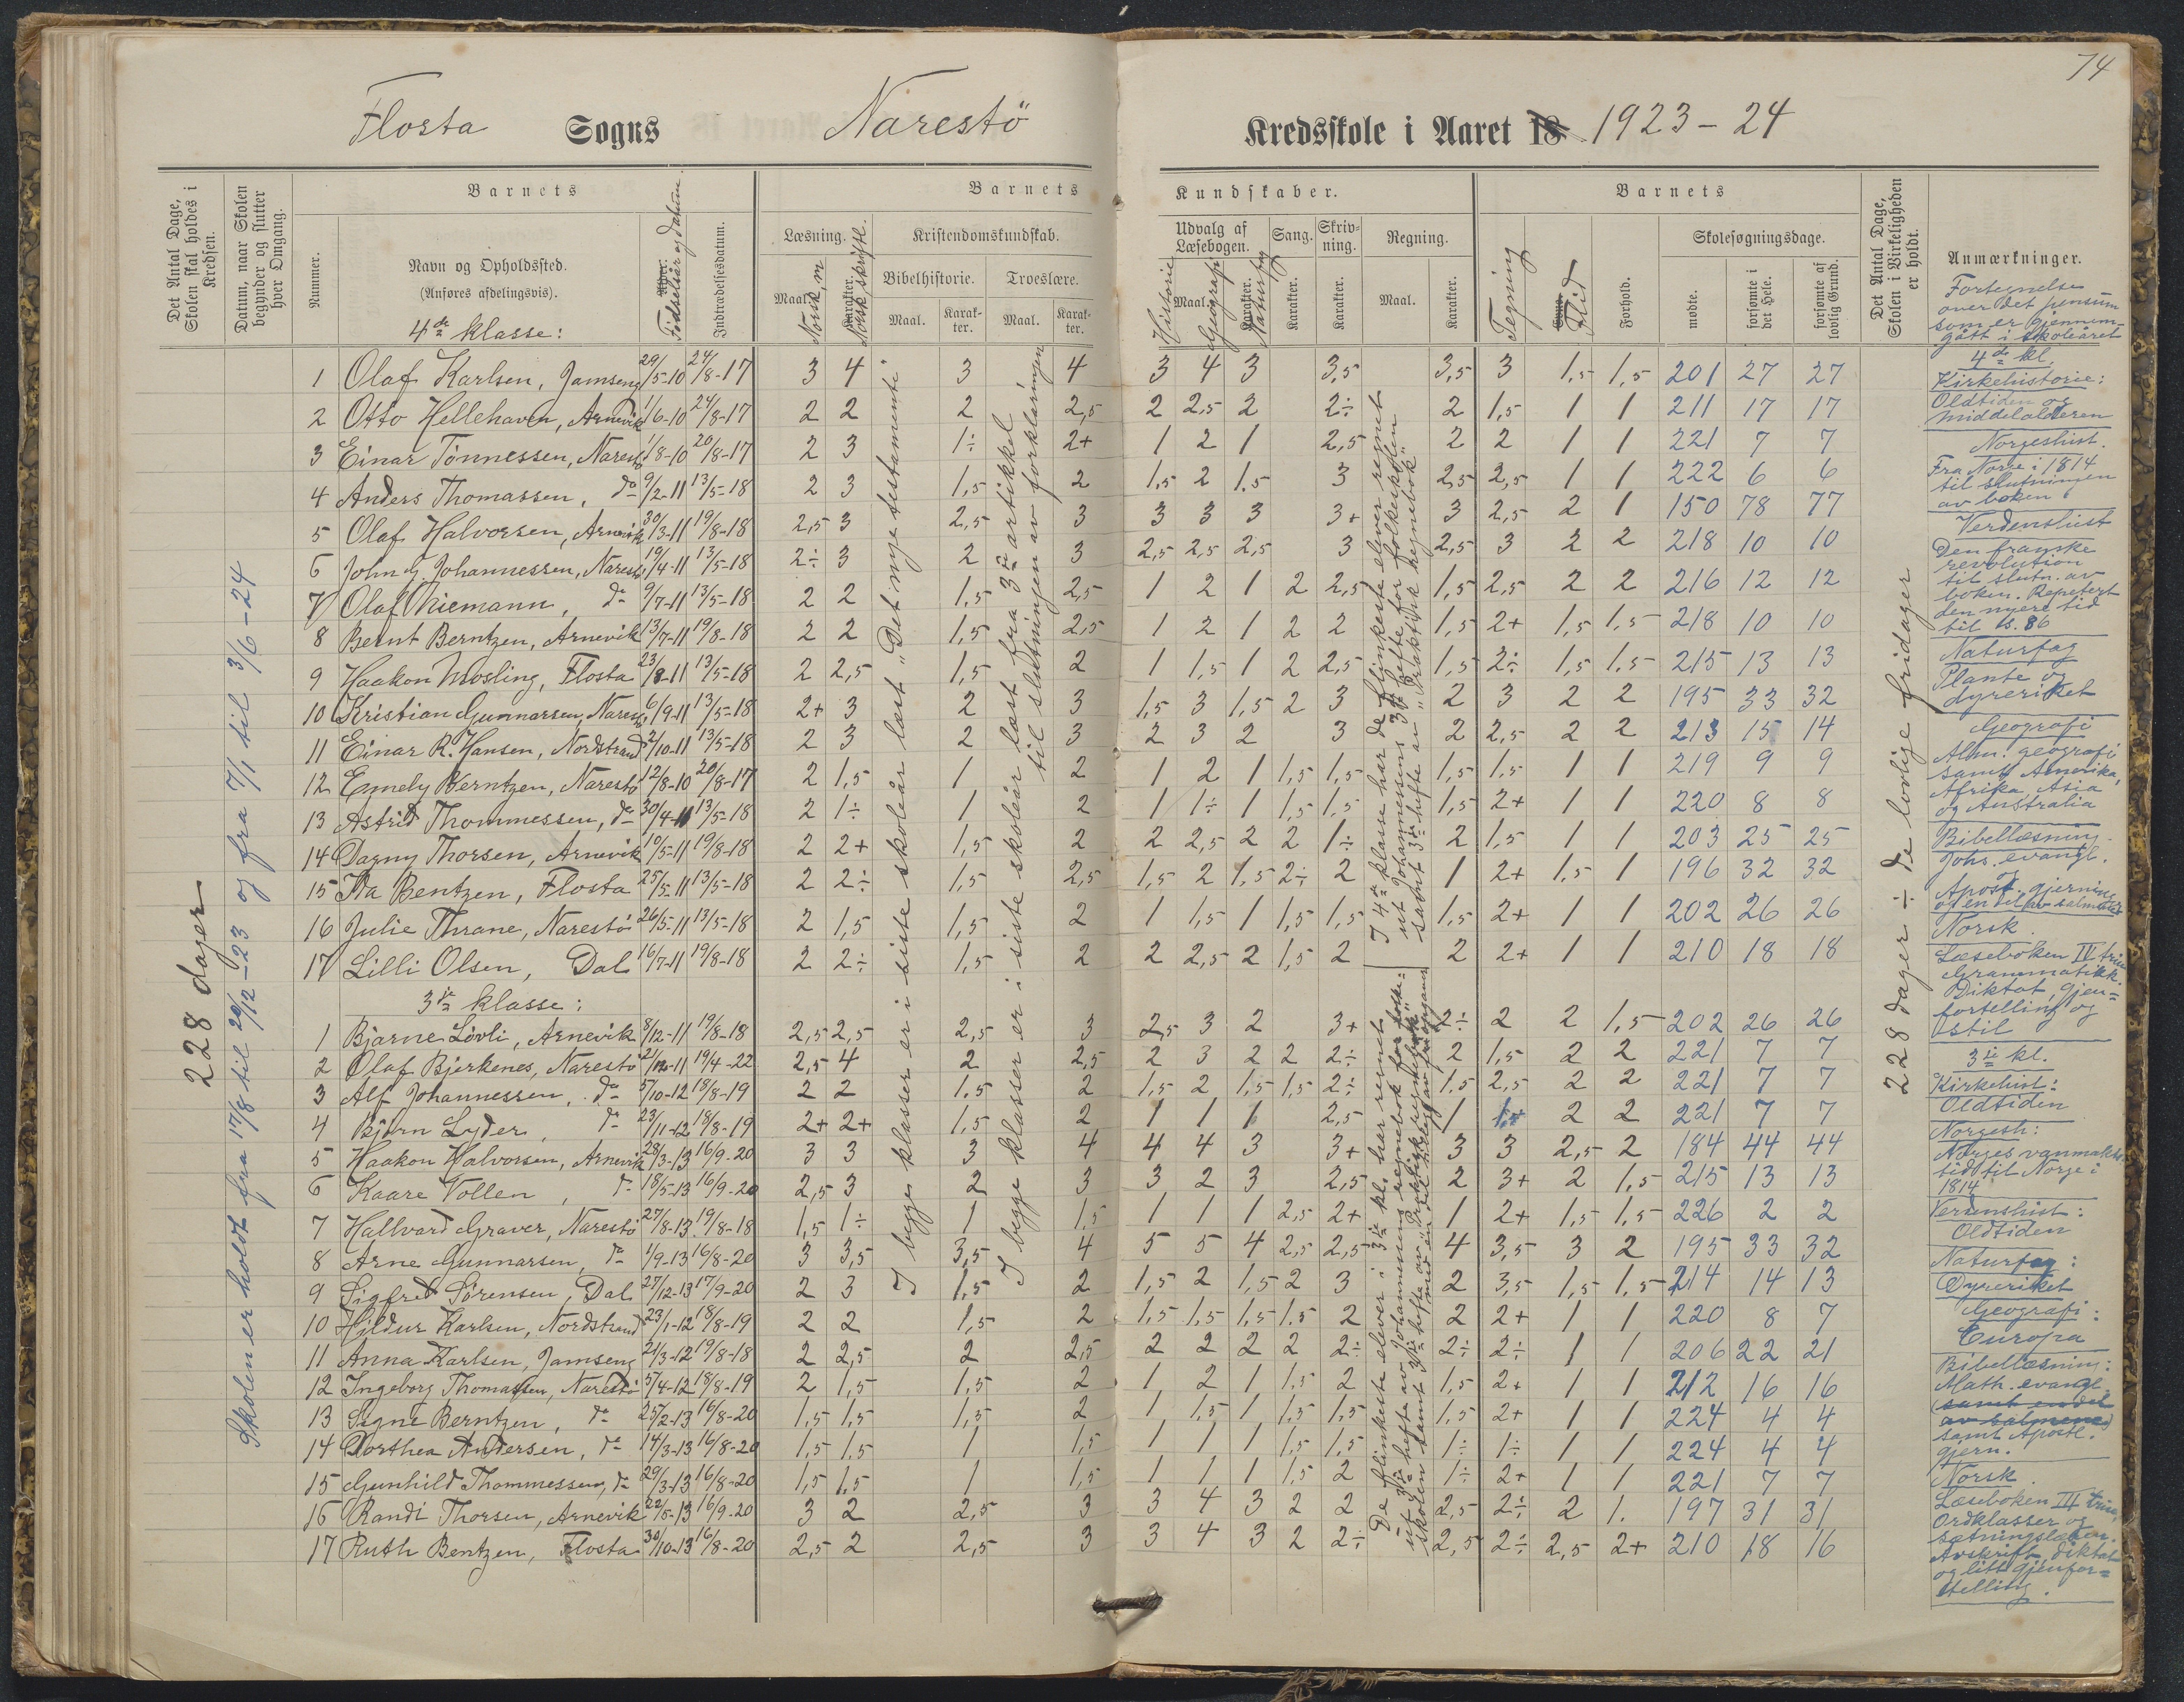 74
Flosta Sogns Narestö Kredsskole i Aaret 18 1923-24
Det Antal Dage, Skolen skal holdes i Kredsen.
Datum, naar Skolen begynder og slutter hver Omgang.
Nummer.
Barnets
Navn og Opholdssted.
(Anføres afdelingsvis).
4de klasse:
Alder.
Födselsår og datum.
Indtrædelsesdatum.
Barnets Kundskaber.
Læsning.
Maal. Karakter.
Norsk, m
Norsk skriftl.
Kristendomskundskab.
Bibelhistorie.
Maal. Karakter.
Troeslære.
Maal. Karakter.
Udvalg af Læsebogen.
Maal. Karakter.
Historie
Geografi
Naturfag
Sang.
Karakter.
Skrivning.
Karakter.
Regning.
Maal. Karakter.
Barnets
Tegning
Flid
Forhold.
Skolesøgningsdage.
mødte.
forsømte i det Hele.
forsømte af lovlig Grund.
Det Antal Dage, Skolen i Virkeligheden er holdt.
Anmærkninger.
228 dager
Skolen er holdt fra 17/8 til 20/12-23 og fra 7/1 til 3/6-24
1 Olaf Karlsen, Jamseng 29/5-10 24/8-17 3 4 3 4 3 4 3 3,5 3,5 3 1,5 1,5 201 27 27
2 Otto Hellehaven, Arnevik 1/6-10 24/8-17 2 2 2 2,5 2 2,5 2 2÷ 2 1,5 1 1 211 17 17
3 Einar Tönnessen, Narestö 1/8-10 20/8-17 2 3 1÷ 2+ 1 2 1 2,5 2 2 1 1 221 7 7
4 Anders Thomassen, do 9/2-11 13/5-18 2 3 1,5 2 1,5 2 1.5 3 2,5 2,5 1 1 222 6 6
5 Olaf Halvorsen, Arnevik 30/3-11 19/8-18 2,5 3 2,5 3 3 3 3 3+ 3 2,5 2 1 150 78 77
6 John G. Johannessen, Narestö 19/4-11 13/5-18 2÷ 3 2 3 2,5 2,5 2,5 3 2,5 3 2 2 218 10 10
7 Olaf Niemann, do 9/7-11 13/5-18 2 2 1,5 2,5 1 2 1 2 2,5 1,5 2,5 2 2 216 12 12
8 Bernt Berntzen, Arnevik 13/7-11 19/8-18 2 2 1,5 2,5 1 2 1 2 2 1,5 2+ 1,5 1,5 218 10 10
9 Haakon Mosling, Flosta 23/8-11 13/5-18 2 2,5 1,5 2 1 1,5 1 2 2,5 1,5 2÷ 1,5 1,5 215 13 13
10 Kristian Gunnarsen, Narestö 6/9-11 13/5-18 2+ 3 2 3 1,5 3 1,5 2 3 2 3 2 2 195 33 32
11 Einar R. Hansen, Nordstrand 2/10-11 13/5-18 2 3 2 3 2 3 2 3 2 2,5 2 2 213 15 14
12 Emmely Berntzen, Narestö 12/8-10 20/8-17 2 1,5 1 2 1 2 1 1,5 1,5 1,5 1,5 1 1 219 9 9
13 Astrid Thommessen, do 30/4-11 13/5-18 2 1÷ 1 2 1 1÷ 1 1,5 1,5 1,5 2+ 1 1 220 8 8
14 Dagny Thorsen, Arnevik 10/5-11 19/8-18 2 2+ 1,5 2 2 2,5 2 2 1÷ 2 1,5 1 1 203 25 25
15 Ida Bentzen, Flosta 25/5-11 13/5-18 2 2÷ 1,5 2,5 1,5 2 1,5 2÷ 2 1 2+ 1,5 1 196 32 32
16 Julie Thrane, Narestö 26/5-11 13/5-18 2 1,5 1,5 2 1 1,5 1 1,5 1,5 1,5 2+ 1 1 202 26 26
17 Lilli Olsen, Dal 16/7-11 19/8-18 2 2÷ 1,5 2 2 2,5 2 1,5 2 2 2+ 1 1 210 18 18
3die klasse:
1 Bjarne Lövli, Arnevik 8/12-11 19/8-18 2,5 2,5 2,5 3 2,5 3 2 3+ 2÷ 2 2 1,5 202 26 26
2 Olaf Bjerkenes, Narestö 19/4-22 2,5 4 2 2,5 2 3 2 2 2÷ 2 1,5 2 2 221 7 7
3 Alf Johannessen, do 5/10-12 18/8-19 2 2 1,5 2 1,5 2 1,5 1,5 2÷ 1,5 2,5 2 2 221 7 7
4 Björn Lyder, do 23/11-12 18/8-19 2+ 2+ 1,5 2 1 1 1 2,5 1 2 2 221 7 7
5 Haakon Halvorsen, Arnevik 28/3-13 16/9-20 3 3 3 4 4 4 3 3+ 3 3 2,5 2 184 44 44
6 Kaare Vollen, do 18/5-13 16/9-20 2,5 3 2 3 3 2 3 2,5 2 3+ 2 1,5 215 13 13
7 Hallvard Graver, Narestö 27/8-13 19/8-18 1,5 1÷ 1 1,5 1 1 1 2,5 2+ 1 2+ 1,5 1,5 226 2 2
8 Arne Gunnarsen, do 1/9-13 16/8-20 3 3,5 3,5 4 5 5 4 2,5 2,5 4 3,5 3 2 195 33 32
9 Sigfred Sörensen, Dal 27/12-13 17/9-20 2 3 1,5 2 1,5 2 1,5 2 3 2 3,5 1,5 1,5 214 14 13
10 Hjldur Karlsen, Nordstrand 23/1-12 18/8-19 2 2 1,5 2 1,5 1,5 1,5 1.5 2 2 2+ 1 1 220 8 7
11 Anna Karlsen, Jamseng 21/3-12 19/8-18 2 2,5 2 2,5 2 2 2 2 2÷ 2÷ 2÷ 1 1 206 22 21
12 Ingeborg Thomassen, Narestö 5/4-12 18/8-19 2 1,5 1,5 2 1 2 1 1,5 2 1,5 2+ 1 1 212 16 16
13 Signe Berntzen, do 25/2-13 16/8-20 1,5 1,5 1,5 2 1 1,5 1 1,5 1,5 1,5 2+ 1 1 224 4 4
14 Dorthea Andersen, do 14/3-13 16/8-20 1,5 1,5 1 1,5 1 1 1 1,5 1,5 1÷ 1÷ 1 1 224 4 4
15 Gunhild Thommessen, do 29/3-13 16/8-20 1,5 1,5 1 1,5 1 1 1 1,5 2 1÷ 2+ 1 1 221 7 7
16 Randi Thorsen, Arnevik 22/5-13 16/9-20 3 2 2,5 3 3 4 3 2 2 2,5 2÷ 2 1. 197 31 31
17 Ruth Bentzen, Flosta 30/10-13 16/8-20 2,5 2 2,5 3 3 4 3 2 2÷ 2,5 2÷ 2,5 2+ 210 18 16
I begge klasser er i siste skoleår læst "Det nye testamente"
I begge klasser er i siste skoleår læst fra 3die artikkel
til slutningen av forklaringen
I 4de klasse har de flinkeste elever regnet
ut Johannesens 3die hefte for folkeskolen
samt 3die hefte av "Praktisk regnebok"
De flinkeste elever i 3die kl. har regnet
ut 3die hefte av Johannesens regnebok for folke=
skolen samt 3die hefte av "Praktisk regnebok"
228 dager ÷ de lovlige fridager
Fortegnelse
over det pensum
som er gjennem-
gått i skoleåret
4de kl.
Kirkehistorie:
Oldtiden og
middelalderen
Norgeshist.
Fra Norge i 1814
til slutningen
av boken
Verdenshist
Den franske
revolution
til slutn. av
boken. Repetert
den nyere tid
til s. 86
Naturfag
Plante og
dyreriket
Geografi
Alm. geografi
samt Amerika,
Afrika, Asia
og Australia
Bibellæsning
Johs. evangl.
og
Apost. gjerninger
og en del av salmene
Norsk.
Læseboken IV trin
Grammatikk.
Diktat, gjen=
fortelling og
stil
3die kl.
Kirkehist:
Oldtiden
Norgesh:
Norges vanmakts=
tid til Norge i
1814
Verdenshist:
Oldtiden
Naturfag:
Dyreriket
Geografi:
Europa
Bibellæsning:
Math. evangl.
(samt en del
av salmene)
samt Apostl.
gjern.
Norsk.
Læseboken III trin,
Ordklasser og
sætningslæren.
Avskrift, diktat
og litt gjenfor=
telling.